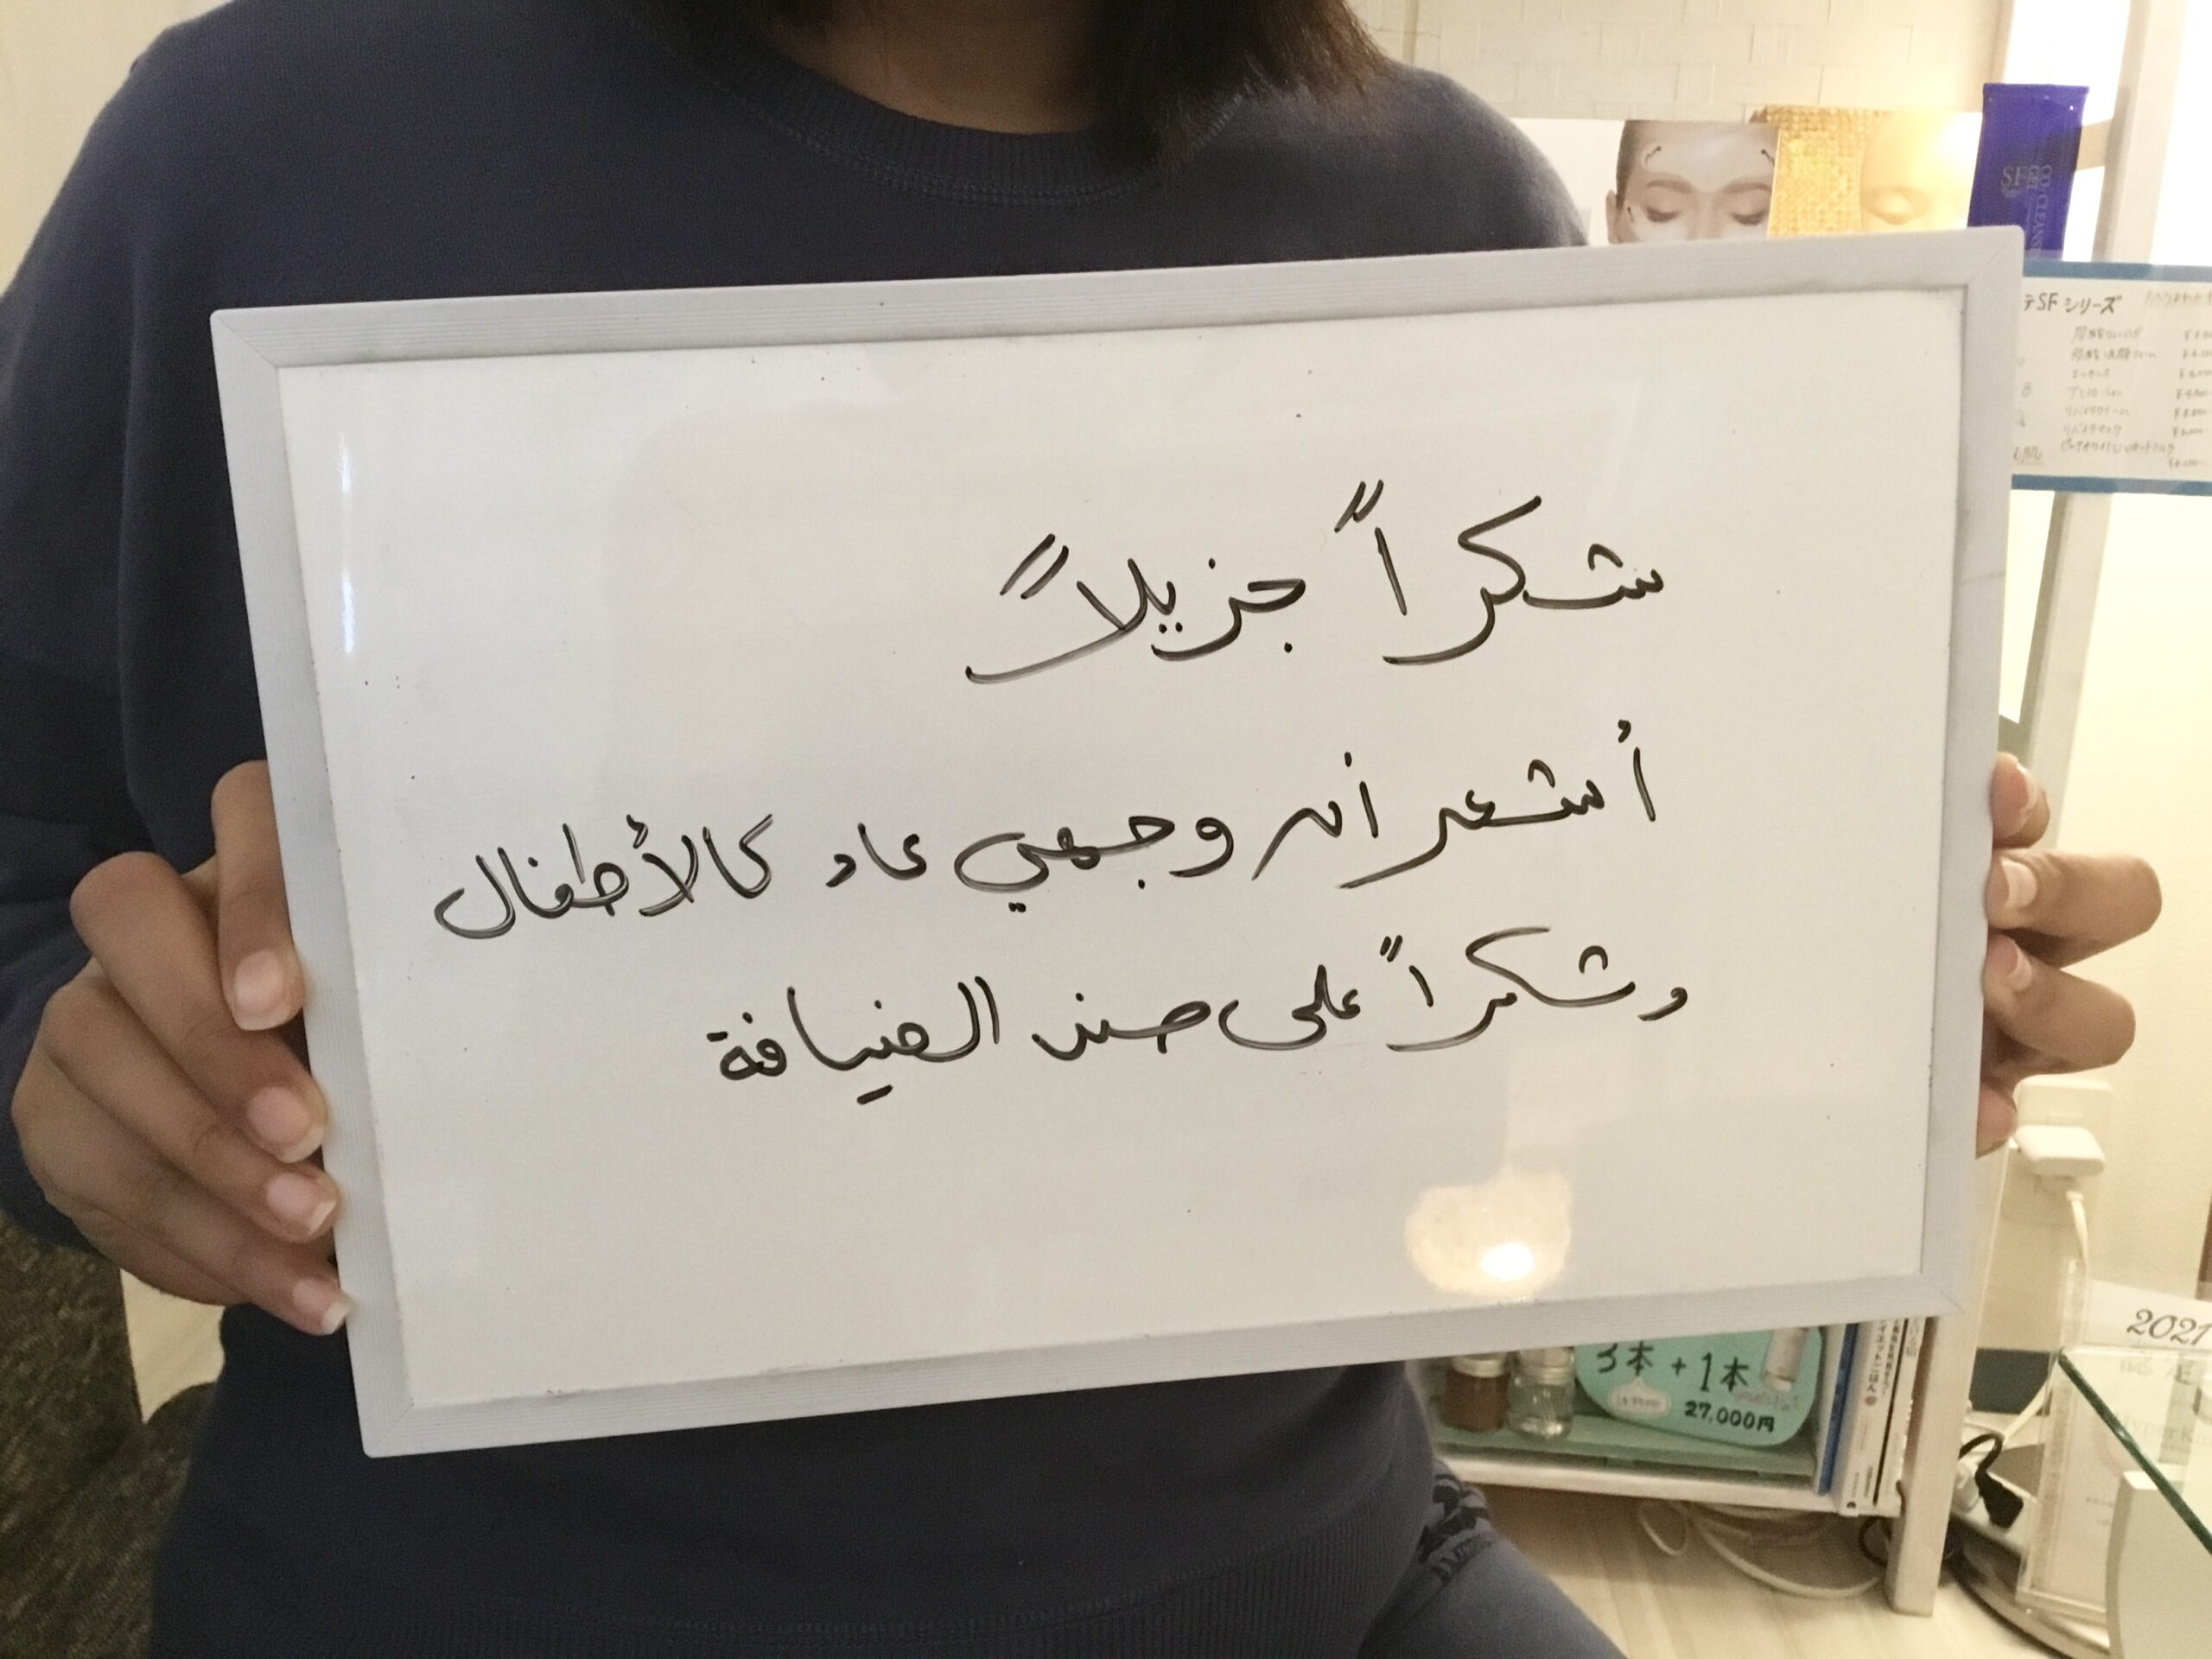 شكراً جزيلاً
أشعر أن وجهي عاد كالأطفال
وشكراً على الضيافة
SF
テSF シリーズ
3本 + 1本
27,000円
2021